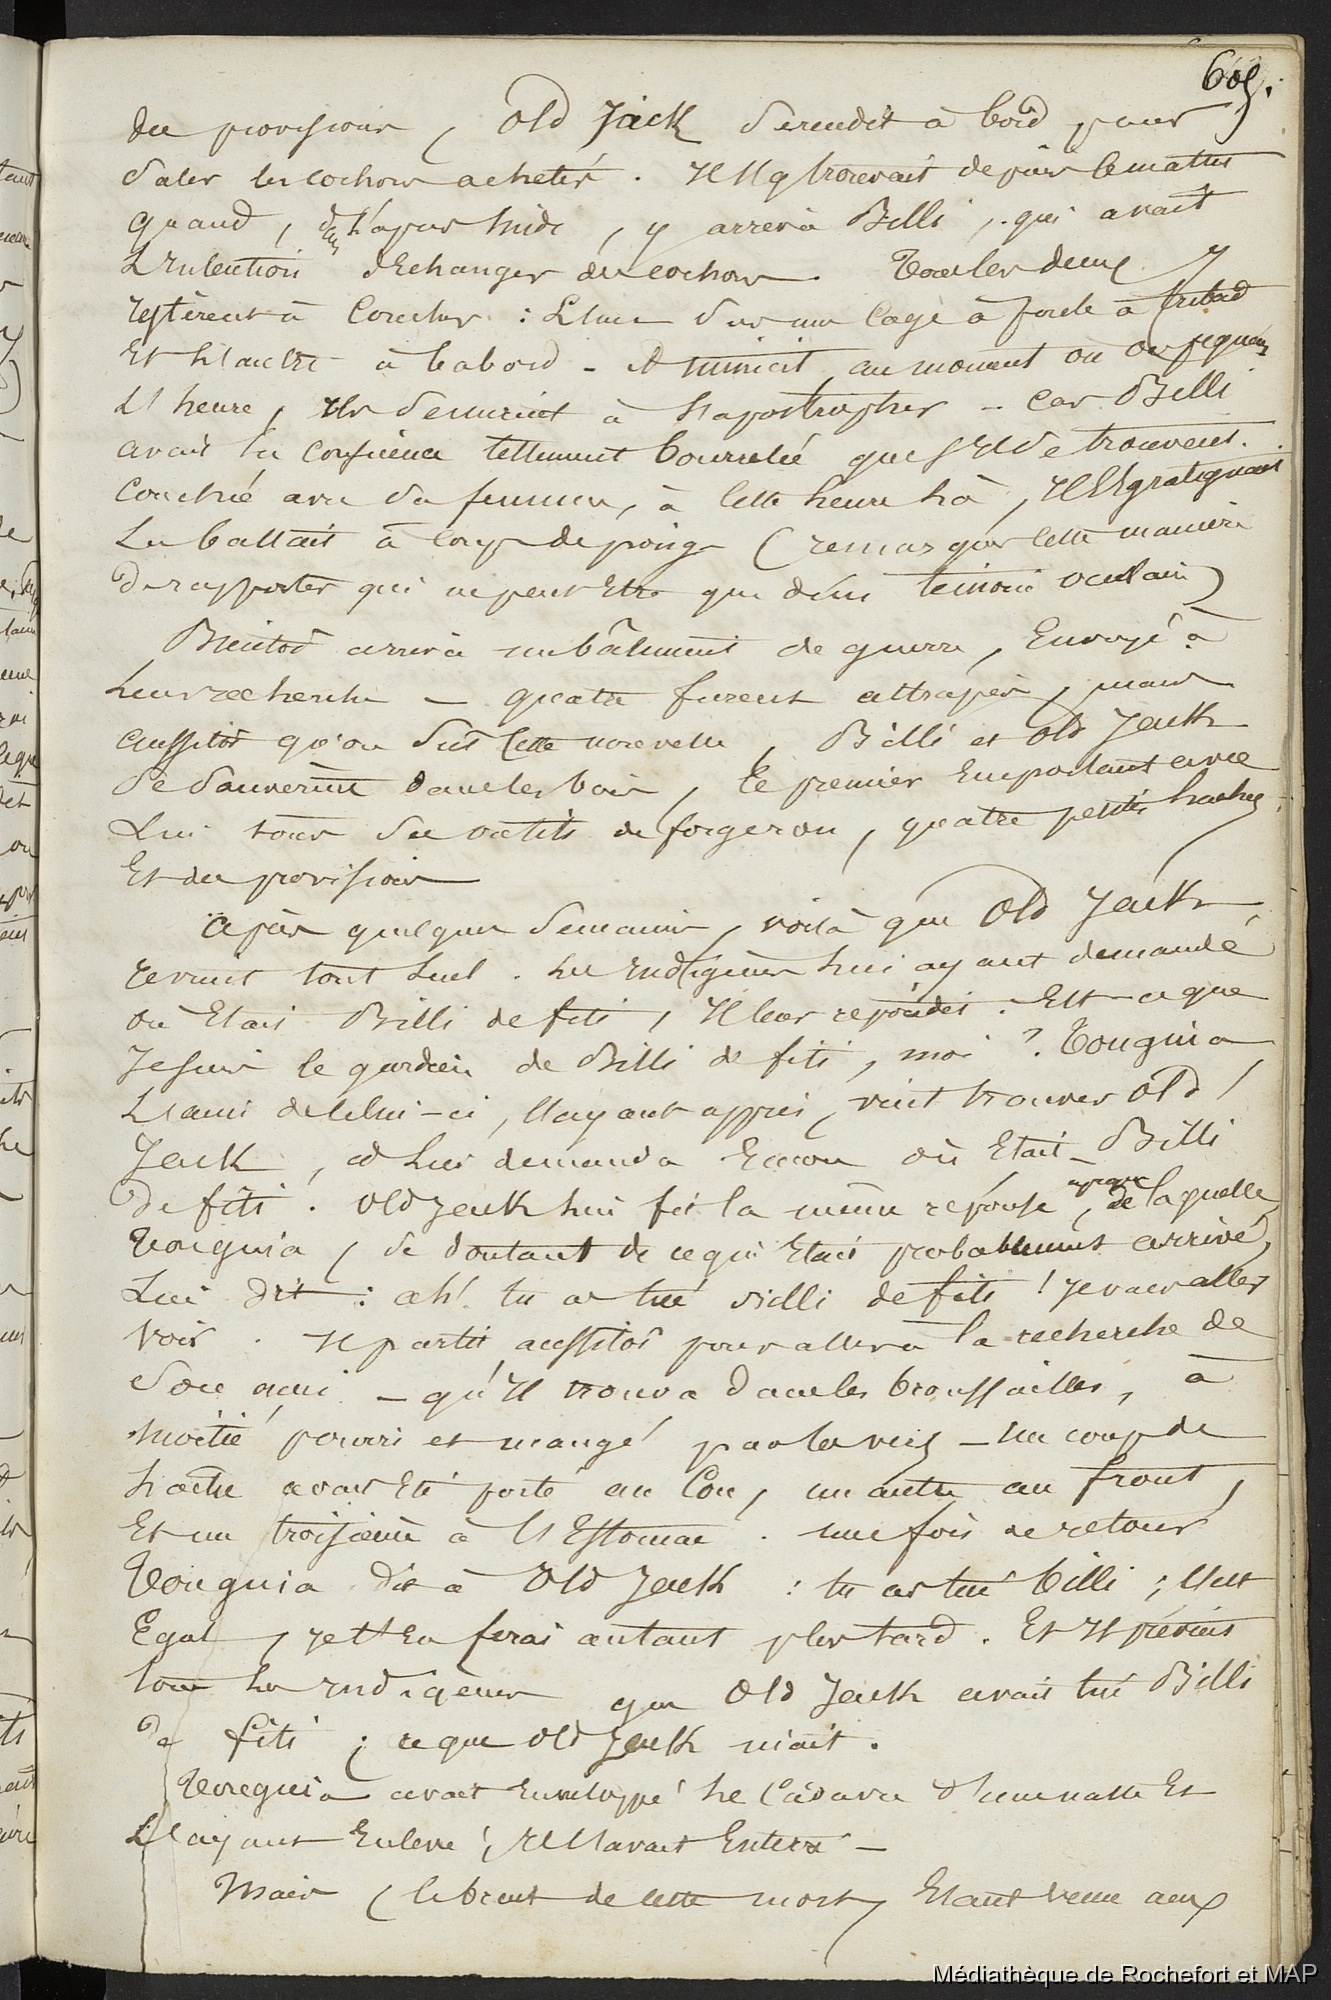 605.
des provisions, Old Jack se rendit à bord pour
saler les cochons achetés. Il s'y trouvait depuis le matin
quand, dans l'après midi, y arriva Billi, qui avait
l'intention d'échanger des cochons. Tous les deux y
restèrent à coucher : l'un sur une cage à poule à tribord
et l'autre à babord - à minuit, au moment où on piquait
l'heure, ils se mirent à s'apostropher - car Billi
avait la conscience tellement bourrelée que s'il se trouvait
couché avec sa femme, à cette heure là, il l'égratignait
la battait à coups de poings (remarquer cette manière
de rapporter qui ne peut être que d'un témoin oculaire)
Bientôt arriva un bâtiment de guerre, envoyé à
leur recherche - quatre furent attrapés, mais
aussitôt qu'on sut cette nouvelle, Billi et Old Jack
se sauvèrent dans les bois, le premier emportant avec
lui tous ses outils de forgeron, quatre petites haches
et des provisions
après quelques semaines, voilà que Old Jack
revint tout seul. les indigènes lui ayant demandé
où était Billi de fiti, il leur répondit. Est-ce que
je suis le gardien de Billi de fiti, moi ?. Touguia
l'ami de celui-ci, l'ayant appris, vint trouver Old
Jack, et lui demanda encore où était Billi
de fiti. Old Jack lui fit la même réponse, après de laquelle
Touguia, se doutant de ce qui était probablement arrivé,
lui dit : ah! tu as tué Billi de fiti ! je vais aller
voir. Il partit aussitôt pour aller à la recherche de
son ami - qu'il trouva dans les broussailles, à
moitié pourri et mangé par les vers - un coup de
hache avait été porté au cou, un autre au front,
et un troisième à l'estomac. une fois de retour
Touguia dit à Old Jack : tu as tué Billi ; c'est
égal, je t'en ferai autant plus tard. Et il prévint
tous les indigènes que Old Jack avait tué Billi
de fiti ; ce que Old Jack niait.
Touguia avait enveloppé le cadavre d'une natte et
l'ayant enlevé, il l'avait enterré -
Mais, le bruit de cette mort, étant venu aux
Médiathèque de Rochefort et MAP